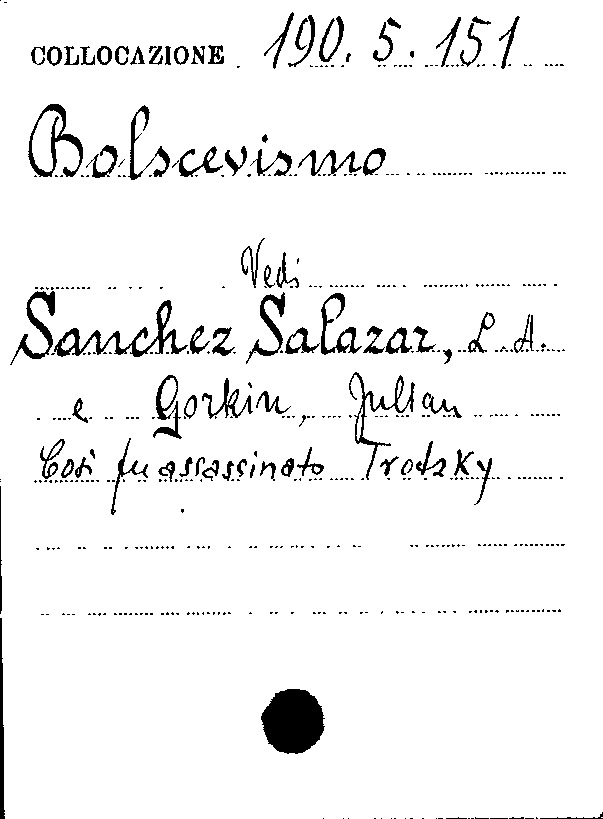 COLLOCAZIONE 190. 5. 151
Bolscevismo
Vedi
Sanchez Salazar, L. A.
e Gorkin, Julian
Così fu assassinato Trotzky